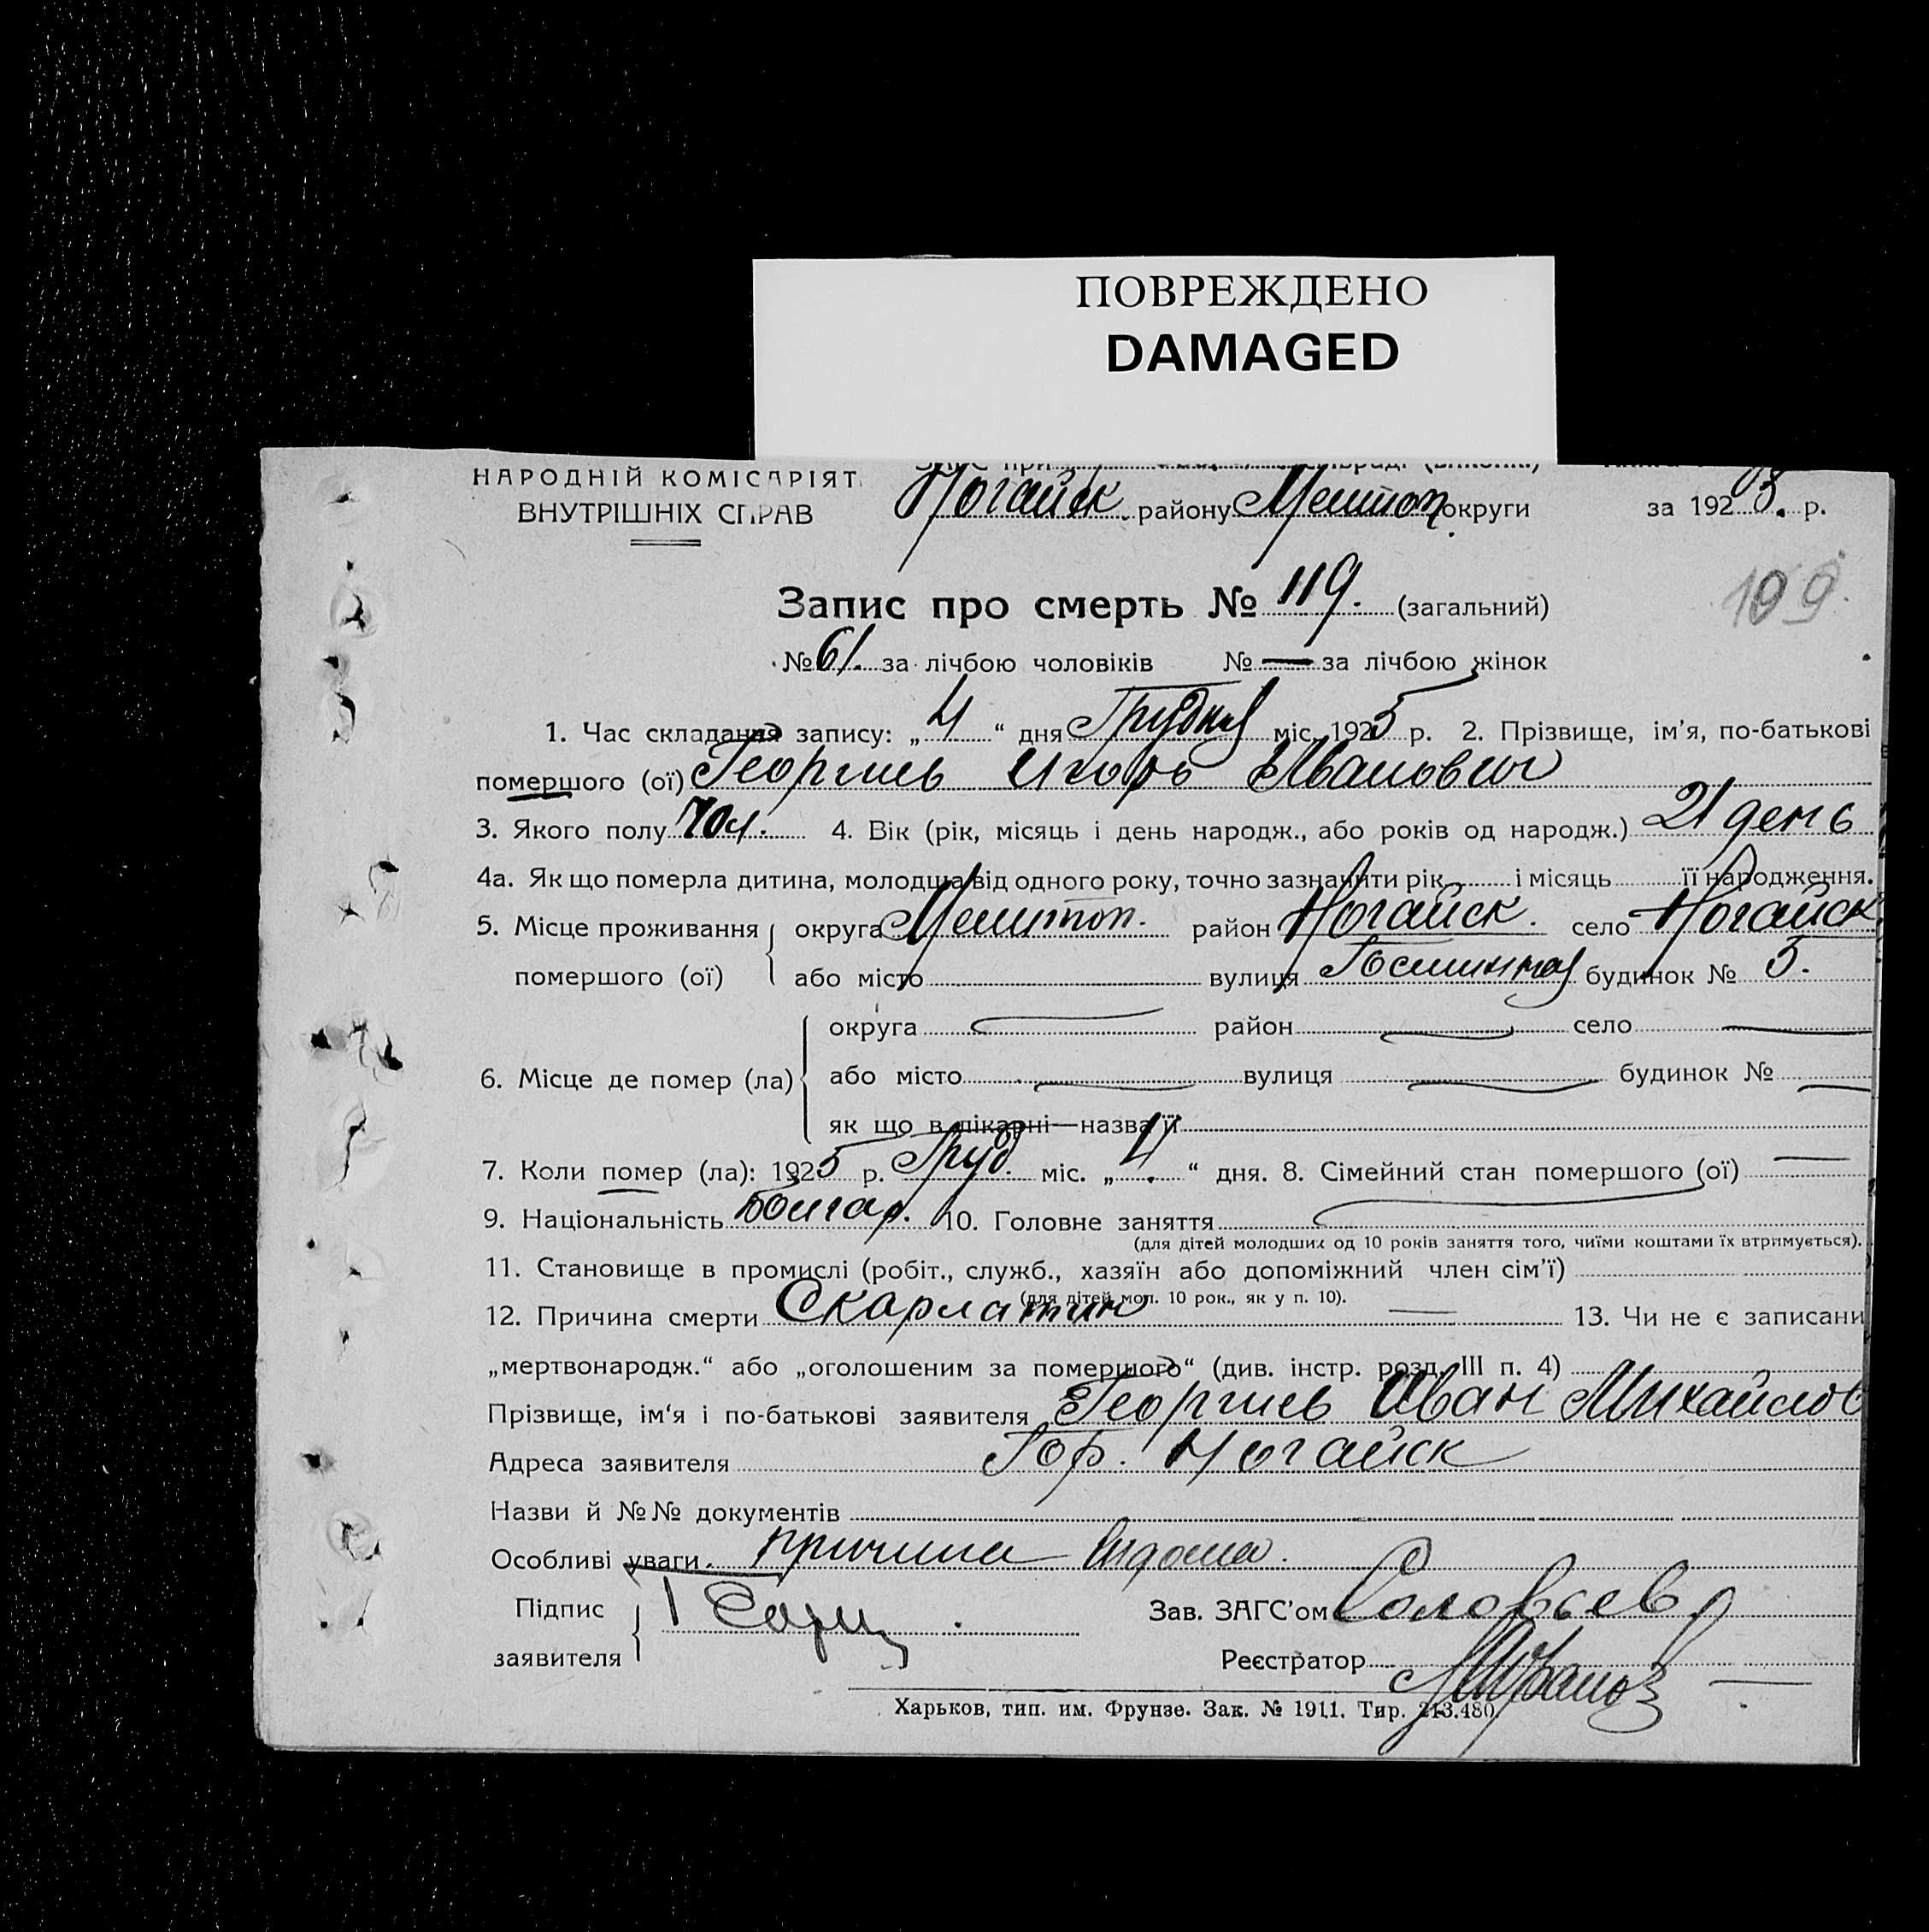 ПОВРЕЖДЕНО
DAMAGED
НАРОДНІЙ КОМІСАРІЯТ
ВНУТРІШНІХ СПРАВ
Ногайск району Мелитоп округи за 1925 р.
109.
Запис про смерть № 119. (загальний)
№ 61. за лічбою чоловіків № — за лічбою жінок
1. Час складання запису: „4“ дня Грудня міс. 1925 р. 2. Прізвище, ім'я, по-батькові
помершого (ої) Георгиев Игорь Иванович
3. Якого полу чол. 4. Вік (рік, місяць і день народж., або років од народж.) 21 день
4а. Як що померла дитина, молодша від одного року, точно зазначити рік і місяць її народження.
5. Місце проживання округа Мелитоп. район Ногайск. село Ногайск
помершого (ої) або місто вулиця будинок № 5.
округа — район — село —
6. Місце де помер (ла) або місто — вулиця — будинок № —
як що в лікарні—назва її
7. Коли помер (ла): 1925 р. Груд. міс. „4“ дня. 8. Сімейний стан помершого (ої) —
9. Національність Болгар. 10. Головне заняття —
(для дітей молодших од 10 років заняття того, чиїми коштами їх втримується).
11. Становище в промислі (робіт., служб., хазяїн або допоміжний член сім'ї)
(для дітей мол. 10 рок., як у п. 10).
12. Причина смерти Скарлатин — 13. Чи не є записани
„мертвонародж.“ або „оголошеним за помершого“ (див. інстр. розд. III п. 4)
Прізвище, ім'я і по-батькові заявителя Георгиев Иван Михайлов
Адреса заявителя Гор. Ногайск
Назви й №№ документів
Особливі уваги. причина
Підпис
заявителя
Зав. ЗАГС'ом Соловьев
Реєстратор
Харьков, тип. им. Фрунзе. Зак. № 1911. Тир. 213.480.